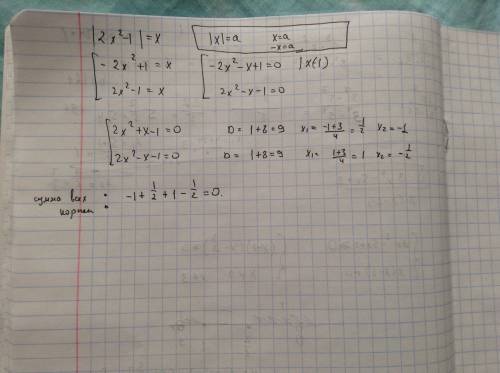 |2x²-1| = x
|x|=a x=a
-x=a
[ -2x²+1 = x
2x²-1 = x
[ -2x²-x+1=0 |x(-1)
2x²-x-1=0
[ 2x²+x-1=0 D = 1+8=9 x₁= (-1+3)/4 = 1/2 x₂=-1
2x²-x-1=0 D = 1+8=9 x₁= (1+3)/4 = 1 x₂=-1/2
сумма всех корней : -1+1/2+1-1/2=0.